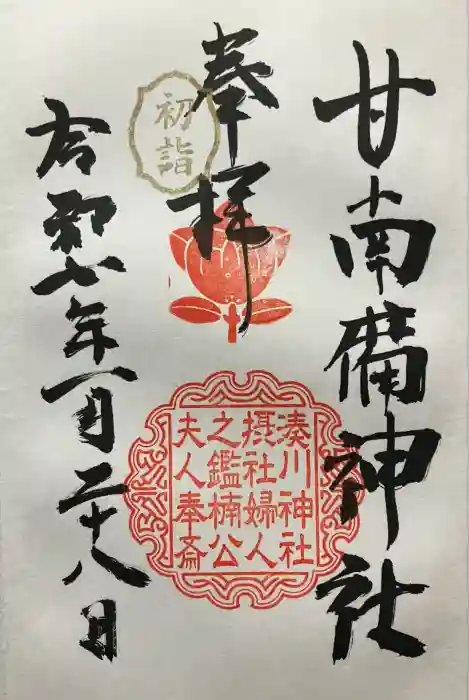 甘南備神社
奉拝
初詣
湊川神社
摂社婦人
之鑑楠公
夫人奉斎
令和八年一月二十八日